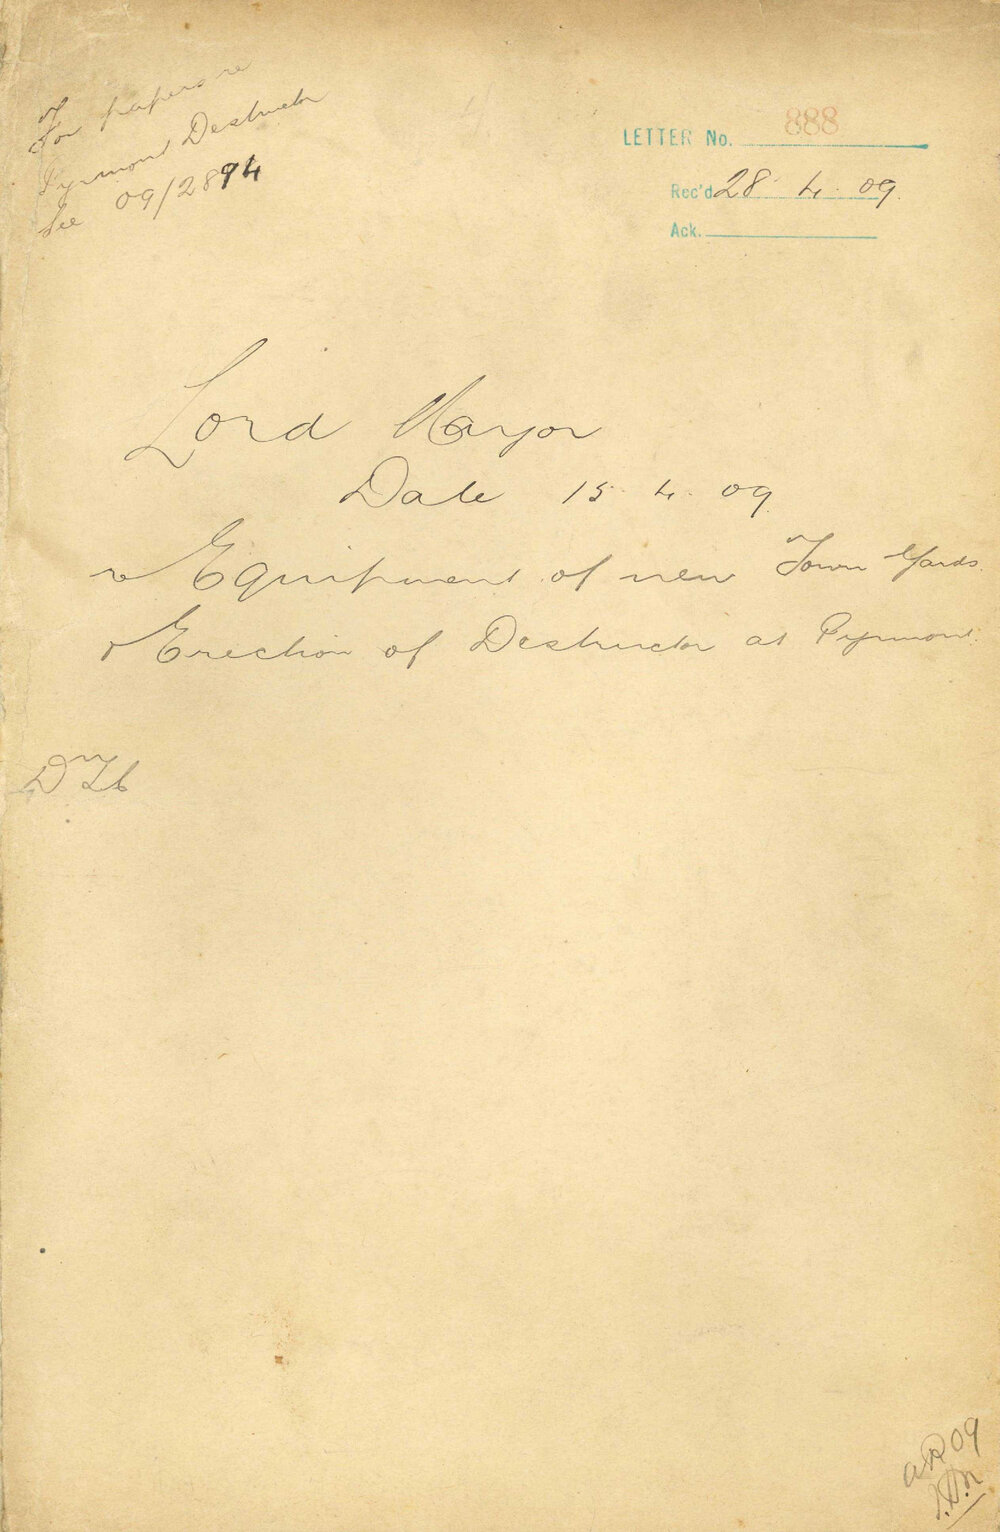 For papers re
Pyrmont Destructor
See 09/2894
LETTER No. 888
Rec'd 28. 4. 09.
Ack.
Lord Mayor
Date 15. 4. 09
re Equipment of new Town Yards.
& Erection of Destructor at Pyrmont.
09